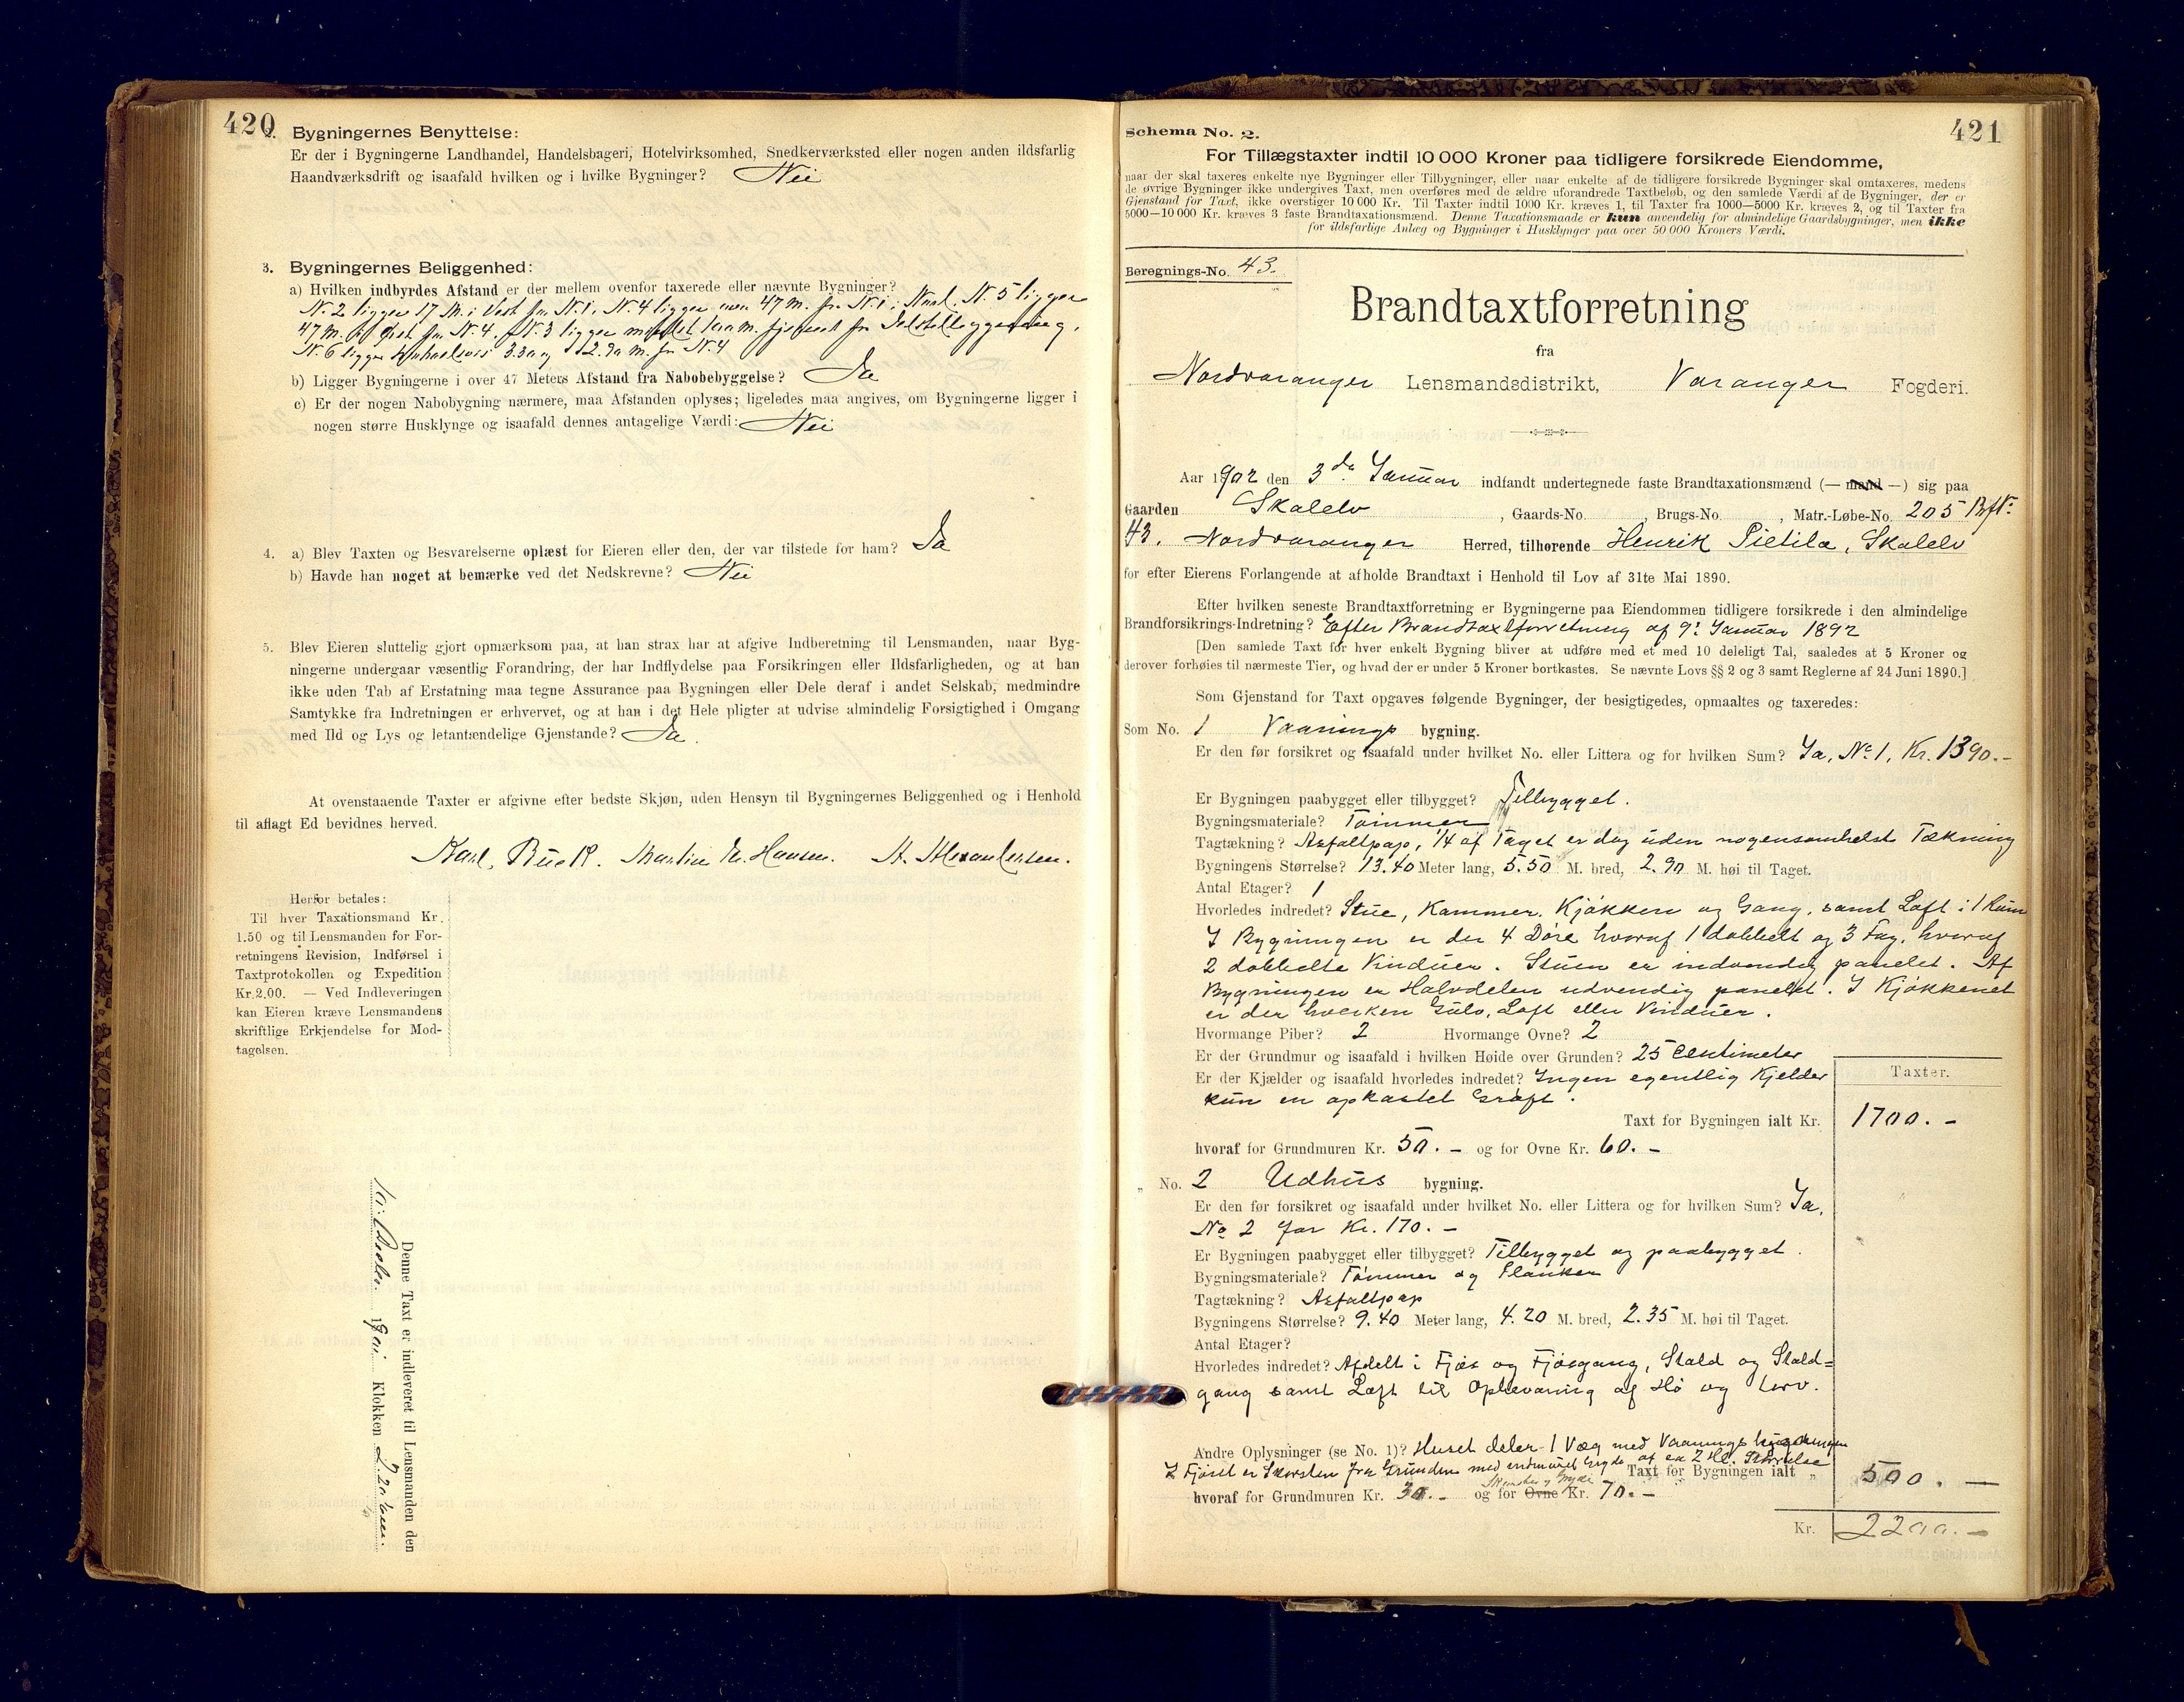 420
2. Bygningernes Benyttelse:
Er der i Bygningerne Landhandel, Handelsbageri, Hotelvirksomhed, Snedkerværksted eller nogen anden ildsfarlig
Haandværksdrift og isaafald hvilken og i hvilke Bygninger? Nei
3. Bygningernes Beliggenhed:
a) Hvilken indbyrdes Afstand er der mellem ovenfor taxerede eller nævnte Bygninger?
N. 2 ligger 17 M. i Vest fra N. 1. N. 4 ligger over 47 M. fra N. 1 i Nord. N. 5 ligger
47 M. fra N. 4. N. 3 ligger
N. 6 ligger fra N. 4
b) Ligger Bygningerne i over 47 Meters Afstand fra Nabobebyggelse? Ja
c) Er der nogen Nabobygning nærmere, maa Afstanden oplyses; ligeledes maa angives, om Bygningerne ligger i
nogen større Husklynge og isaafald dennes antagelige Værdi: Nei
4. a) Blev Taxten og Besvarelserne oplæst for Eieren eller den, der var tilstede for ham? Ja
b) Havde han noget at bemærke ved det Nedskrevne? Nei
5. Blev Eieren sluttelig gjort opmærksom paa, at han strax har at afgive Indberetning til Lensmanden, naar Byg-
ningerne undergaar væsentlig Forandring, der har Indflydelse paa Forsikringen eller Ildsfarligheden, og at han
ikke uden Tab af Erstatning maa tegne Assurance paa Bygningen eller Dele deraf i andet Selskab, medmindre
Samtykke fra Indretningen er erhvervet, og at han i det Hele pligter at udvise almindelig Forsigtighed i Omgang
med Ild og Lys og letantændelige Gjenstande? Ja.
At ovenstaaende Taxter er afgivne efter bedste Skjøn, uden Hensyn til Bygningernes Beliggenhed og i Henhold
til aflagt Ed bevidnes herved.
Karl Buck. Martin Hansen. A. Alexandersen.
Herfor betales:
Til hver Taxationsmand Kr.
1.50 og til Lensmanden for For-
retningens Revision, Indførsel i
Taxtprotokollen og Expedition
Kr. 2.00. — Ved Indleveringen
kan Eieren kræve Lensmandens
skriftlige Erkjendelse for Mod-
tagelsen.
Denne Taxt er indleveret til Lensmanden den
1901 Klokken
421
Schema No. 2.
For Tillægstaxter indtil 10 000 Kroner paa tidligere forsikrede Eiendomme,
naar der skal taxeres enkelte nye Bygninger eller Tilbygninger, eller naar enkelte af de tidligere forsikrede Bygninger skal omtaxeres, medens
de øvrige Bygninger ikke undergives Taxt, men overføres med de ældre uforandrede Taxtbeløb, og den samlede Værdi af de Bygninger, der er
Gjenstand for Taxt, ikke overstiger 10 000 Kr. Til Taxter indtil 1000 Kr. kræves 1, til Taxter fra 1000—5000 Kr. kræves 2, og til Taxter fra
5000—10 000 Kr. kræves 3 faste Brandtaxationsmænd. Denne Taxationsmaade er kun anvendelig for almindelige Gaardsbygninger, men ikke
for ildsfarlige Anlæg og Bygninger i Husklynger paa over 50 000 Kroners Værdi.
Beregnings-No. 43.
Brandtaxtforretning
fra
Nordvaranger Lensmandsdistrikt, Varanger Fogderi.
Aar 1902 den 3de Januar indfandt undertegnede faste Brandtaxationsmænd (— mand —) sig paa
Gaarden Skalelv, Gaards-No. , Brugs-No. , Matr.-Løbe-No. 205 Bf№
43. Nordvaranger Herred, tilhørende Henrik Pietilæ, Skalelv
for efter Eierens Forlangende at afholde Brandtaxt i Henhold til Lov af 31te Mai 1890.
Efter hvilken seneste Brandtaxtforretning er Bygningerne paa Eiendommen tidligere forsikrede i den almindelige
Brandforsikrings-Indretning? Efter Brandtaxtforretning af 9: Januar 1892
[Den samlede Taxt for hver enkelt Bygning bliver at udføre med et med 10 deleligt Tal, saaledes at 5 Kroner og
derover forhøies til nærmeste Tier, og hvad der er under 5 Kroner bortkastes. Se nævnte Lovs §§ 2 og 3 samt Reglerne af 24 Juni 1890.]
Som Gjenstand for Taxt opgaves følgende Bygninger, der besigtigedes, opmaaltes og taxeredes:
Som No. 1 Vaanings bygning.
Er den før forsikret og isaafald under hvilket No. eller Littera og for hvilken Sum? Ja, No 1, Kr. 1390.-
Er Bygningen paabygget eller tilbygget? Tilbygget.
Bygningsmateriale? Tømmer
Tagtækning? Asfaltpap, 1/4 af Taget er dog uden nogensomhelst Tækning
Bygningens Størrelse? 13.40 Meter lang, 5.50 M. bred, 2.90 M. høi til Taget.
Antal Etager? 1
Hvorledes indredet? Stue, Kammer, Kjøkken og Gang, samt Loft i 1 Rum
I Bygningen er der 4 Døre hvoraf 1 dobbelt og 3 Fag, hvoraf
2 dobbelte Vinduer. Stuen er indvendig panelet. Af
Bygningen er Halvdelen udvendig panelet. I Kjøkkenet
er der hverken Gulv, Loft eller Vinduer.
Hvormange Piber? 2 Hvormange Ovne? 2
Er der Grundmur og isaafald i hvilken Høide over Grunden? 25 Centimeter
Er der Kjælder og isaafald hvorledes indredet? Ingen egentlig Kjelder
kun en opkastet Grøft.
Taxter.
Taxt for Bygningen ialt Kr. 1700.-
hvoraf for Grundmuren Kr. 50.- og for Ovne Kr. 60.-
„ No. 2 Udhus bygning.
Er den før forsikret og isaafald under hvilket No. eller Littera og for hvilken Sum? Ja,
No 2 for Kr. 170.-
Er Bygningen paabygget eller tilbygget? Tilbygget og paabygget.
Bygningsmateriale? Tømmer og Planker
Tagtækning? Asfaltpap
Bygningens Størrelse? 9.40 Meter lang, 4.20 M. bred, 2.35 M. høi til Taget.
Antal Etager?
Hvorledes indredet? Afdelt i Fjøs og Fjøsgang, Stald og Stald=
gang samt Loft til Opbevaring af Hø og torv.
Andre Oplysninger (se No. 1)? Huset deler 1 Væg med Vaanings bygningen
I Fjøset er Skorsten fra Grunden med indmuret Gryde af ca 2 Hl. Størrelse
Taxt for Bygningen ialt „ 500.-
Skorsten og Gryde
hvoraf for Grundmuren Kr. 30.- og for Ovne Kr. 70.-
Kr. 2200.-